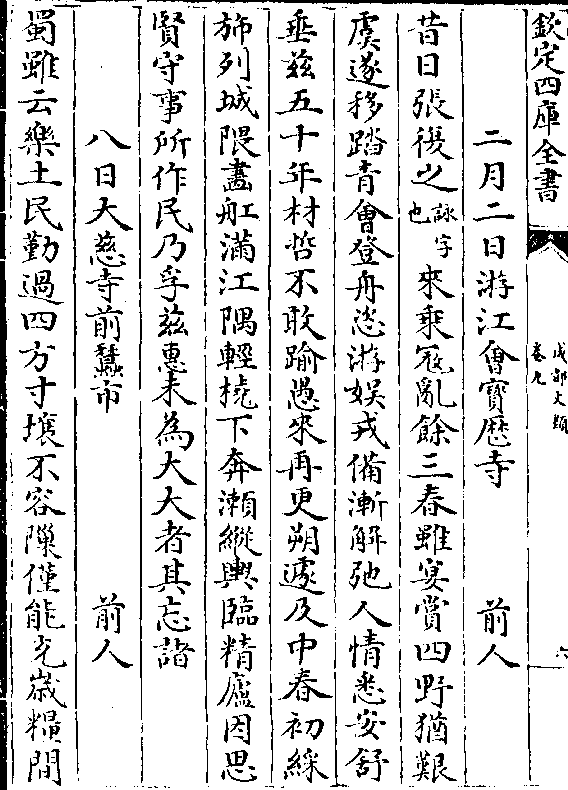 欽定四庫全書
成都文類
卷九
六
二月二日游江會寶歴寺　前人
昔日張復之詠字也來乘冦亂餘三春雖宴賞四野猶艱
虞遂移踏青會登舟恣游娯戎備漸解弛人情悉安舒
垂兹五十年材哲不敢踰愚來再更朔遽及中春初綵
斾列城隈畫舡滿江隅輕橈下奔瀬縱輿臨精廬因思
賢守事所作民乃孚兹惠未為大大者其忘諸
八日大慈寺前蠶市　前人
蜀雖云樂土民勤過四方寸壤不容隟僅能充歳糧間